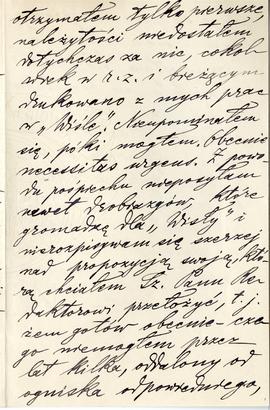 otrzymałem tylko pierwsze,
należytości niedostałem
dotychczas za nic, cokol-
wiek w r. z. i bieżącym
drukowano z mych prac
w „Wiśle". Nieupominałem
się, póki mogłem, obecnie
necessitas urgens. Z powo-
du pospiechu nieposyłam
nawet drobiazgów, które
gromadzę dla „Wisły" i
nierozpisywam się szerzej
nad propozycją swoją, któ-
rą chciałem Sz. Panu Re-
daktorowi przełożyć, t. j.
żem gotów obecnie – cze-
go niemogłem przez
lat kilka, oddalony od
ogniska odpowiedniego,